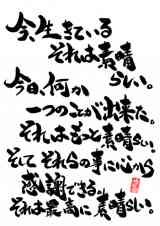 今、生きている
それは素晴らしい。
今日、何か
一つのことが出来た。
それはもっと素晴らしい。
そして それらの事に心から
感謝できる。
それは最高に素晴らしい。